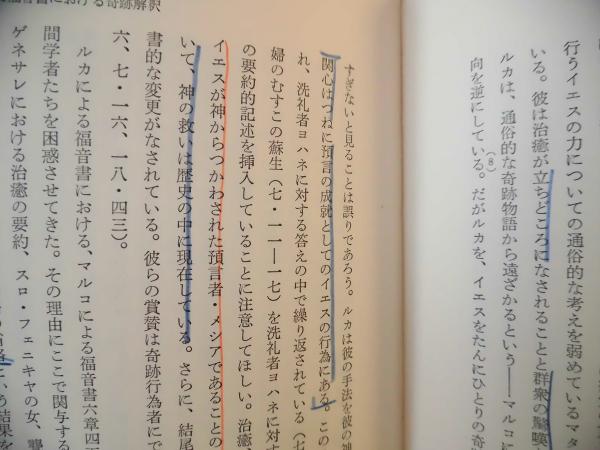 行うイエスの力についての通俗的な考えを弱めているマタ
いる。彼は治癒が立ちどころになされることと群衆の驚嘆
ルカは、通俗的な奇跡物語から遠ざかるという――マルコ
(8)
向を逆にしている。だがルカを、イエスをたんにひとりの奇
福音書における奇跡解釈
すぎないと見ることは誤りであろう。ルカは彼の手法を彼の
関心はつねに預言の成就としてのイエスの行為にある。この
れ、洗礼者ヨハネに対する答えの中で繰り返されている(七
婦のむすこの蘇生(七・一一―一七)を洗礼者ヨハネに対す
の要約的記述を挿入していることに注意してほしい。治癒
イエスが神からつかわされた預言者・メシアであることの
いて、神の救いは歴史の中に現在している。さらに、結尾
書的な変更がなされている。彼らの賞賛は奇跡行為者にで
六、七・一六、一八・四三)。
ルカによる福音書における、マルコによる福音書六章四五
間学者たちを困惑させてきた。その理由にここで関与する
ゲネサレにおける治癒の要約、スロ・フェニキヤの女、聾